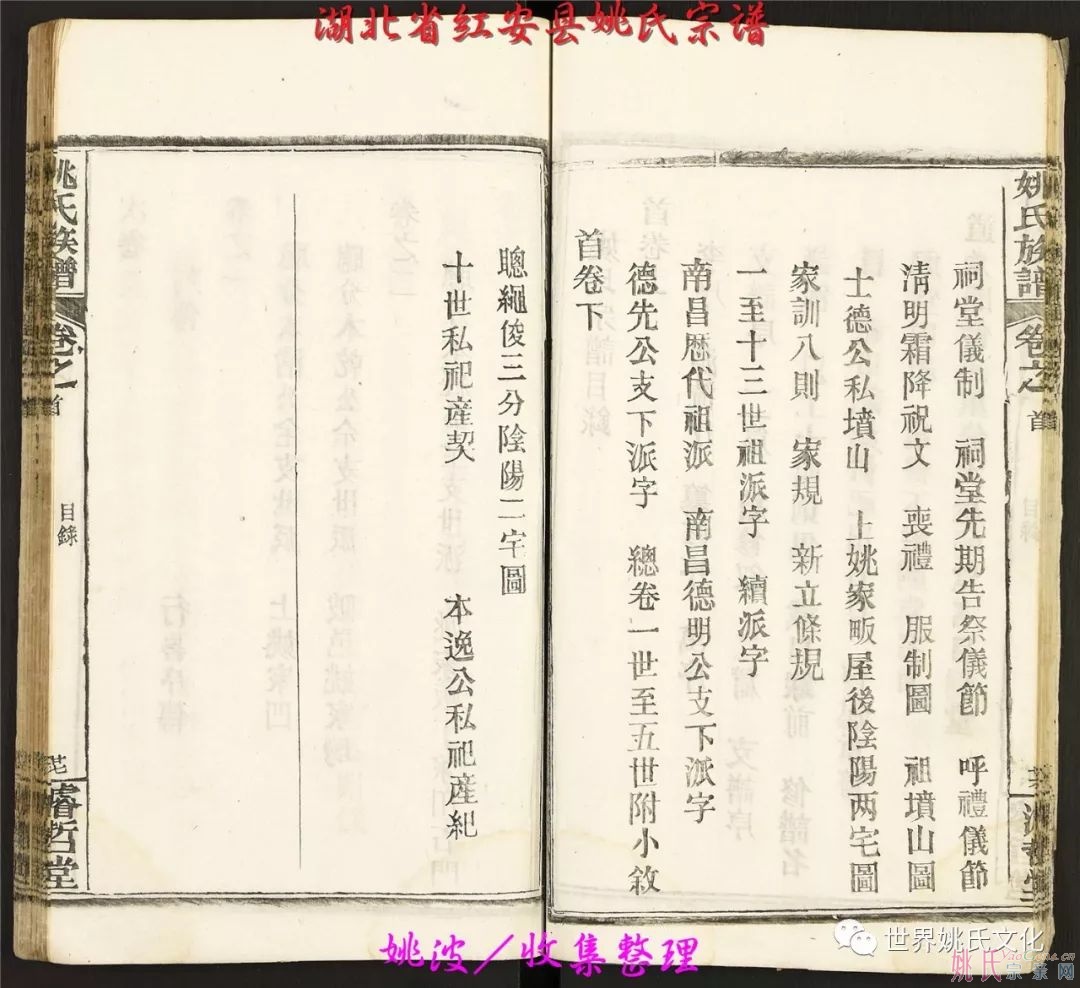 湖北省红安县姚氏宗谱
姚氏族譜
卷之
首
目錄
祠堂儀制 祠堂先期告祭儀節 呼禮儀節
淸明霜降祝文 喪禮 服制圖 祖墳山圖
士德公私墳山 上姚家畈屋後陰陽两宅圖
家訓八則 家規 新立條規
一至十三世祖派字 續派字
南昌歴代祖派 南昌德明公支下派字
德先公支下派字 總卷一世至五世附小敘
首卷下
聰繩俊三分陰陽二宅圖
十世私祀產契 本逸公私祀產紀
姚氏族譜
卷之
首
目錄
濬哲堂
姚波／收集整理
世界姚氏文化
姚氏宗亲网